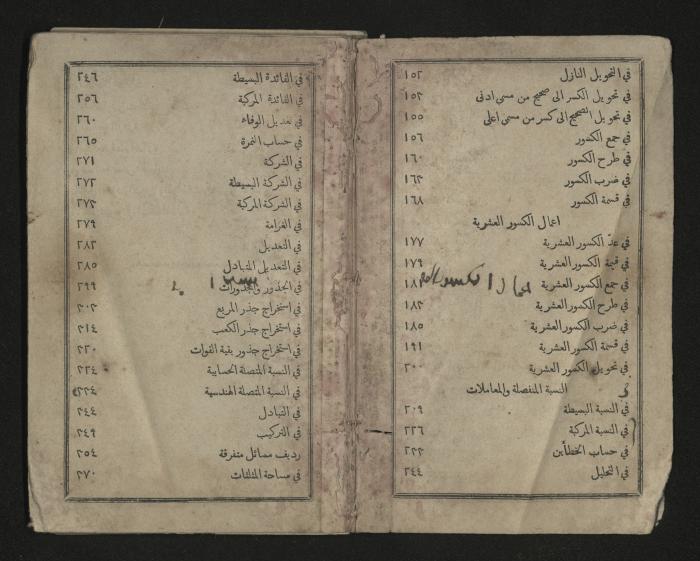 في التحويل النازل ١٥٢
في تحويل الكسر الى صحيح من مسمى ادنى ١٥٣
في تحويل الصحيح الى كسر من مسمى اعلى ١٥٥
في جمع الكسور ١٥٦
في طرح الكسور ١٦٠
في ضرب الكسور ١٦٢
في قسمة الكسور ١٦٨
اعمال الكسور العشرية
في عدّ الكسور العشرية ١٧٧
في قيمة الكسور العشرية ١٧٩
في جمع الكسور العشرية
في طرح الكسور العشرية ١٨٣
في ضرب الكسور العشرية ١٨٥
في قسمة الكسور العشرية ١٩١
في تحويل الكسور العشرية ٢٠٠
النسبة المنفصلة والمعاملات
في النسبة البسيطة ٢٠٩
في النسبة المركبة ٢٢٦
في حساب الخطأين
في التحليل ٢٤٤
في الفائدة البسيطة ٢٤٦
في الفائدة المركبة ٢٥٦
في تعديل الوفاء ٢٦٠
في حساب النمرة ٢٦٥
في الشركة ٢٧١
في الشركة البسيطة ٢٧٢
في الشركة المركبة
في الغرامة ٢٧٩
في التعديل
في التعديل المتبادل ٢٨٥
في الجذور والمجذورات ٢٩٩
في استخراج جذر المربع
في استخراج جذر الكعب
في استخراج جذور بقية القوات
في النسبة المتصلة الحسابية
في النسبة المتصلة الهندسية
في التبادل
في التركيب
رديف مسائل متفرقة
في مساحة المثلثات